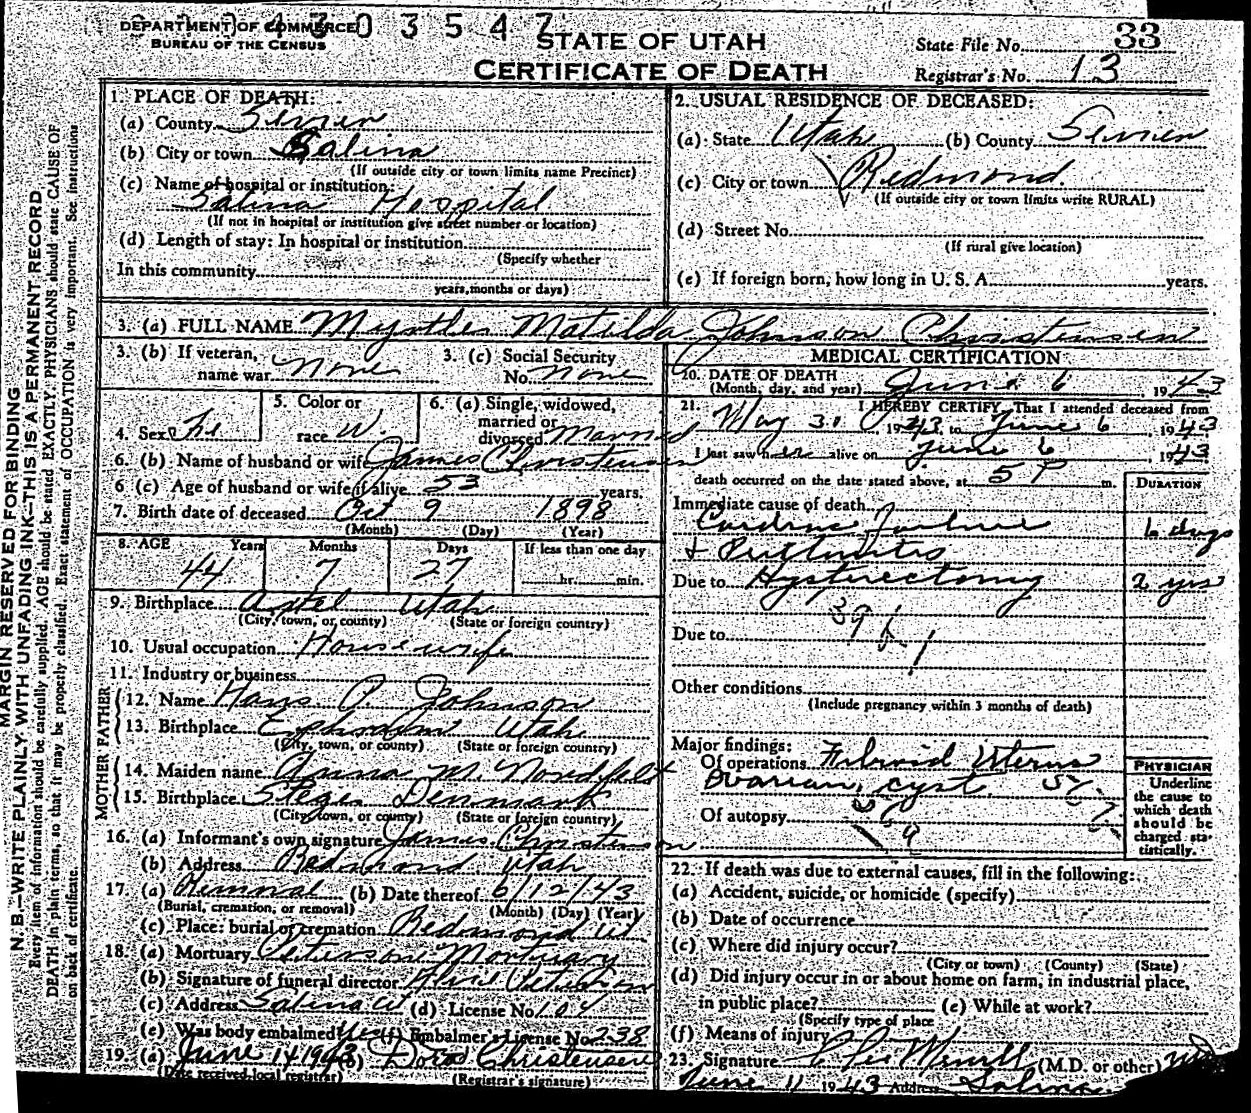 DEPARTMENT OF COMMERCE
BUREAU OF THE CENSUS
4303547
STATE OF UTAH
CERTIFICATE OF DEATH
State File No. 33
Registrar's No. 13
1. PLACE OF DEATH:
(a) County Sevier
(b) City or town Salina
(If outside city or town limits name Precinct)
(c) Name of hospital or institution:
Salina Hospital
(If not in hospital or institution give street number or location)
(d) Length of stay: In hospital or institution
(Specify whether
In this community
years, months or days)
2. USUAL RESIDENCE OF DECEASED:
(a) State Utah (b) County Sevier
(c) City or town Redmond.
(If outside city or town limits write RURAL)
(d) Street No.
(If rural give location)
(e) If foreign born, how long in U. S. A. years.
3. (a) FULL NAME Myrtle Matilda Johnson Christensen
3. (b) If veteran, name war None
3. (c) Social Security No. None
4. Sex Fe
5. Color or race W.
6. (a) Single, widowed, married or divorced Married
6. (b) Name of husband or wife James Christensen
6 (c) Age of husband or wife if alive 53 years.
7. Birth date of deceased Oct 9 1898
(Month) (Day) (Year)
8. AGE Years Months Days If less than one day
44 7 27 hr. min.
9. Birthplace Axtel Utah
(City, town, or county) (State or foreign country)
10. Usual occupation Housewife
11. Industry or business
FATHER
12. Name Hans P. Johnson
13. Birthplace Ephraim Utah
(City, town, or county) (State or foreign country)
MOTHER
14. Maiden name Anna M.
15. Birthplace Stege Denmark
(City, town, or county) (State or foreign country)
16. (a) Informant's own signature James Christensen
(b) Address Redmond Utah
17. (a) Removal (b) Date thereof 6/12/43
(Burial, cremation, or removal) (Month) (Day) (Year)
(c) Place: burial or cremation Redmond Ut
18. (a) Mortuary Peterson Mortuary
(b) Signature of funeral director Peterson
(c) Address Salina Ut (d) License No. 104
(e) Was body embalmed Yes (f) Embalmer's License No. 238
19. (a) June 14 1943 (b) Dora Christensen
(Date received local registrar) (Registrar's signature)
MEDICAL CERTIFICATION
20. DATE OF DEATH
(Month, day, and year) June 6 1943
21. I HEREBY CERTIFY, That I attended deceased from
May 30, 1943, to June 6, 1943
I last saw her alive on June 6, 1943
death occurred on the date stated above, at 5 P m.
DURATION
Immediate cause of death
Cardiac Failure 6 days
& Peritonitis
Due to Hysterectomy 2 yrs
Due to
Other conditions
(Include pregnancy within 3 months of death)
Major findings:
Of operations Fibroid Uterus
Ovarian cyst
Of autopsy
PHYSICIAN
Underline
the cause to
which death
should be
charged sta-
tistically.
22. If death was due to external causes, fill in the following:
(a) Accident, suicide, or homicide (specify)
(b) Date of occurrence
(c) Where did injury occur?
(City or town) (County) (State)
(d) Did injury occur in or about home on farm, in industrial place,
in public place? (e) While at work?
(Specify type of place
(f) Means of injury
23. Signature Merrill (M.D. or other) MD
June 11 1943 Address Salina
MARGIN RESERVED FOR BINDING
N. B.—WRITE PLAINLY WITH UNFADING INK—THIS IS A PERMANENT RECORD
Every item of information should be carefully supplied. AGE should be stated EXACTLY. PHYSICIANS should state CAUSE OF
DEATH in plain terms, so that it may be properly classified. Exact statement of OCCUPATION is very important. See Instructions
on back of certificate.